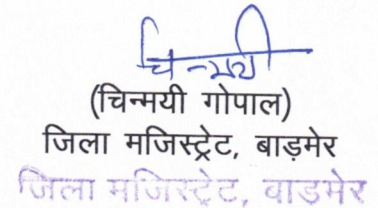 चिन्मयी
(चिन्मयी गोपाल)
जिला मजिस्ट्रेट, बाड़मेर
जिला मजिस्ट्रेट, बाडमेर